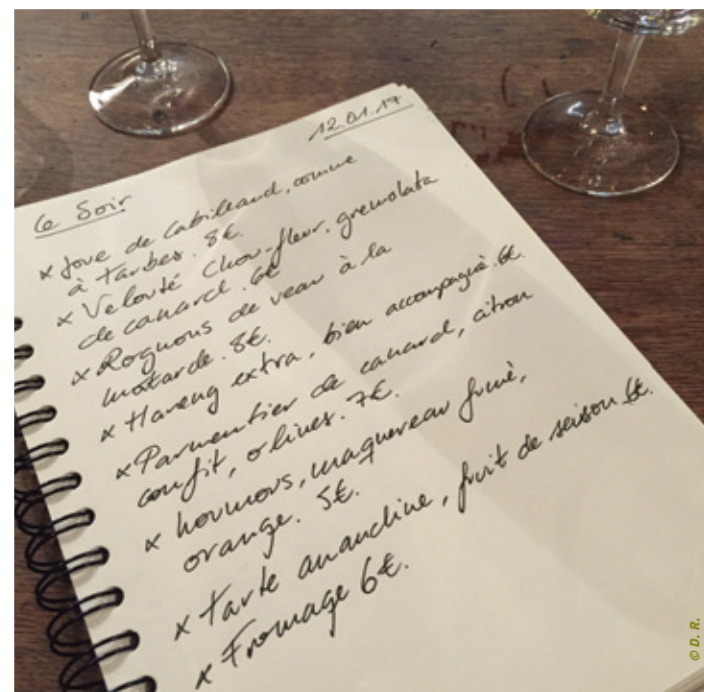 12.01.17
Ce Soir
x Joue de Cabillaud, comme
à Tarbes. 8€.
x Velouté Chou-fleur, gremolata
de canard. 6€
x Rognons de veau à la
moutarde. 8€.
x Hareng extra, bien accompagné. 6€.
x Parmentier de canard, citron
confit, olives. 7€.
x houmous, maquereau fumé,
orange. 5€.
x Tarte amandine, fruit de saison 6€.
x Fromage 6€.
© D. R.